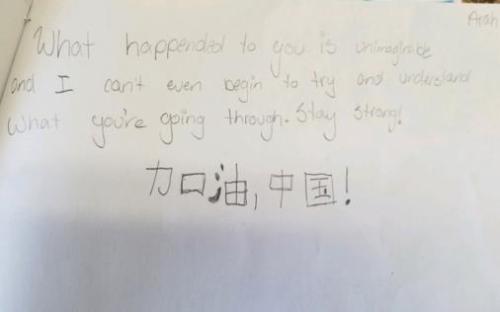 Arah
What happended to you is unimaginable
and I can't even begin to try and understand
what you're going through. Stay strong!
加油, 中国!